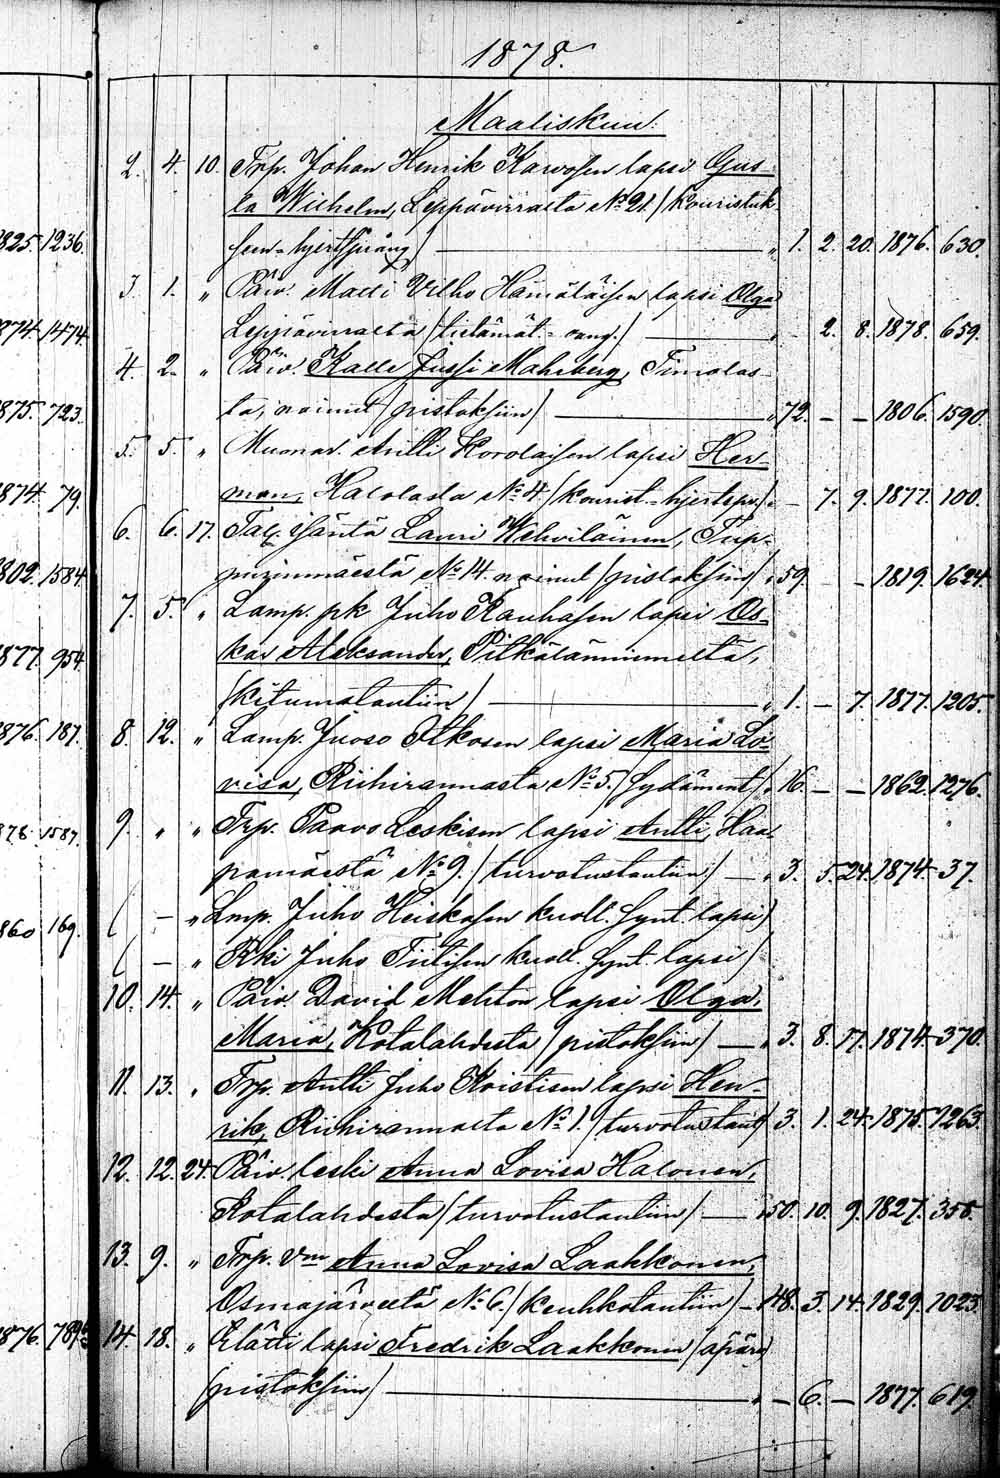 1878.
Maaliskuu.
2. 4. 10. Trp. Johan Henrik Karvosen lapsi Gus-
ta Wilhelm, Leppävirralta No 21. (kouristuk
1825. 1236. sen-hjertsprång) „ 1. 2. 20. 1876. 630.
3. 1. „ Päiv. Matti Vilho Hämäläisen lapsi Olga
1874. 1474. Leppävirralta (tietämät.-vang.) „ - 2. 8. 1878. 659.
4. 2. „ Päiv. Kalle Jussi Mahrberg, Timolas-
1875. 723. ta, nainut (pistoksiin) „ 72. — — 1806. 1590.
5. 5. „ Muonav. Antti Korolaisen lapsi Her-
1874. 79. man, Halolasta No 4. (kourist.-hjertspr.) „ — 7. 9. 1877. 100.
6. 6. 17. Tal. isäntä Lauri Wehviläinen, Tup-
1802. 1584 purinmäestä No 14. nainut (pistoksiin) „ 59. - - 1819. 1624.
7. 5. „ Lamp. pk Juho Kauhasen lapsi Os-
1877. 954. kar Aleksander, Pitkälänniemeltä,
(kitumatautiin) „ 1. — 7. 1877. 1205.
1876. 187. 8. 12. „ Lamp. Juoso Itkosen lapsi Maria Lo-
visa, Riihirannasta No 5. (sydäment) „ 16. — — 1862. 1276.
1878. 1587. 9. „ „ Trp. Paavo Leskisen lapsi Antti, Haa-
pamäestä No 9. (turvotustautiin) — „ 3. 5. 24. 1874. 37.
1860 169. ( — „ Lmp. Juho Heiskasen kuoll. synt. lapsi)
( — „ Rki Juho Tiitisen kuoll. synt. lapsi)
10. 14. „ Päiv. David Mehton lapsi Olga
Maria, Kotalahdesta (pistoksiin) — „ 3. 8. 17. 1874. 370.
11. 13. „ Trp. Antti Juho Koistisen lapsi Hen-
rik, Riihirannalta No 1. (turvotustaut) 3. 1. 24. 1875. 1263.
12. 12. 24. Päiv. leski Anna Lovisa Halonen,
Kotalahdesta (turvotustautiin) — „ 50. 10. 9. 1827. 358.
13. 9. „ Trp. vm Anna Lovisa Laakkonen,
Osmajärveltä No 6. (keuhkotautiin) — „ 48. 3. 14. 1829. 1023.
1876. 14. 18. „ Elätti lapsi Fredrik Laakkonen (äpärä)
(pistoksiin) „ — 6. — 1877. 619.